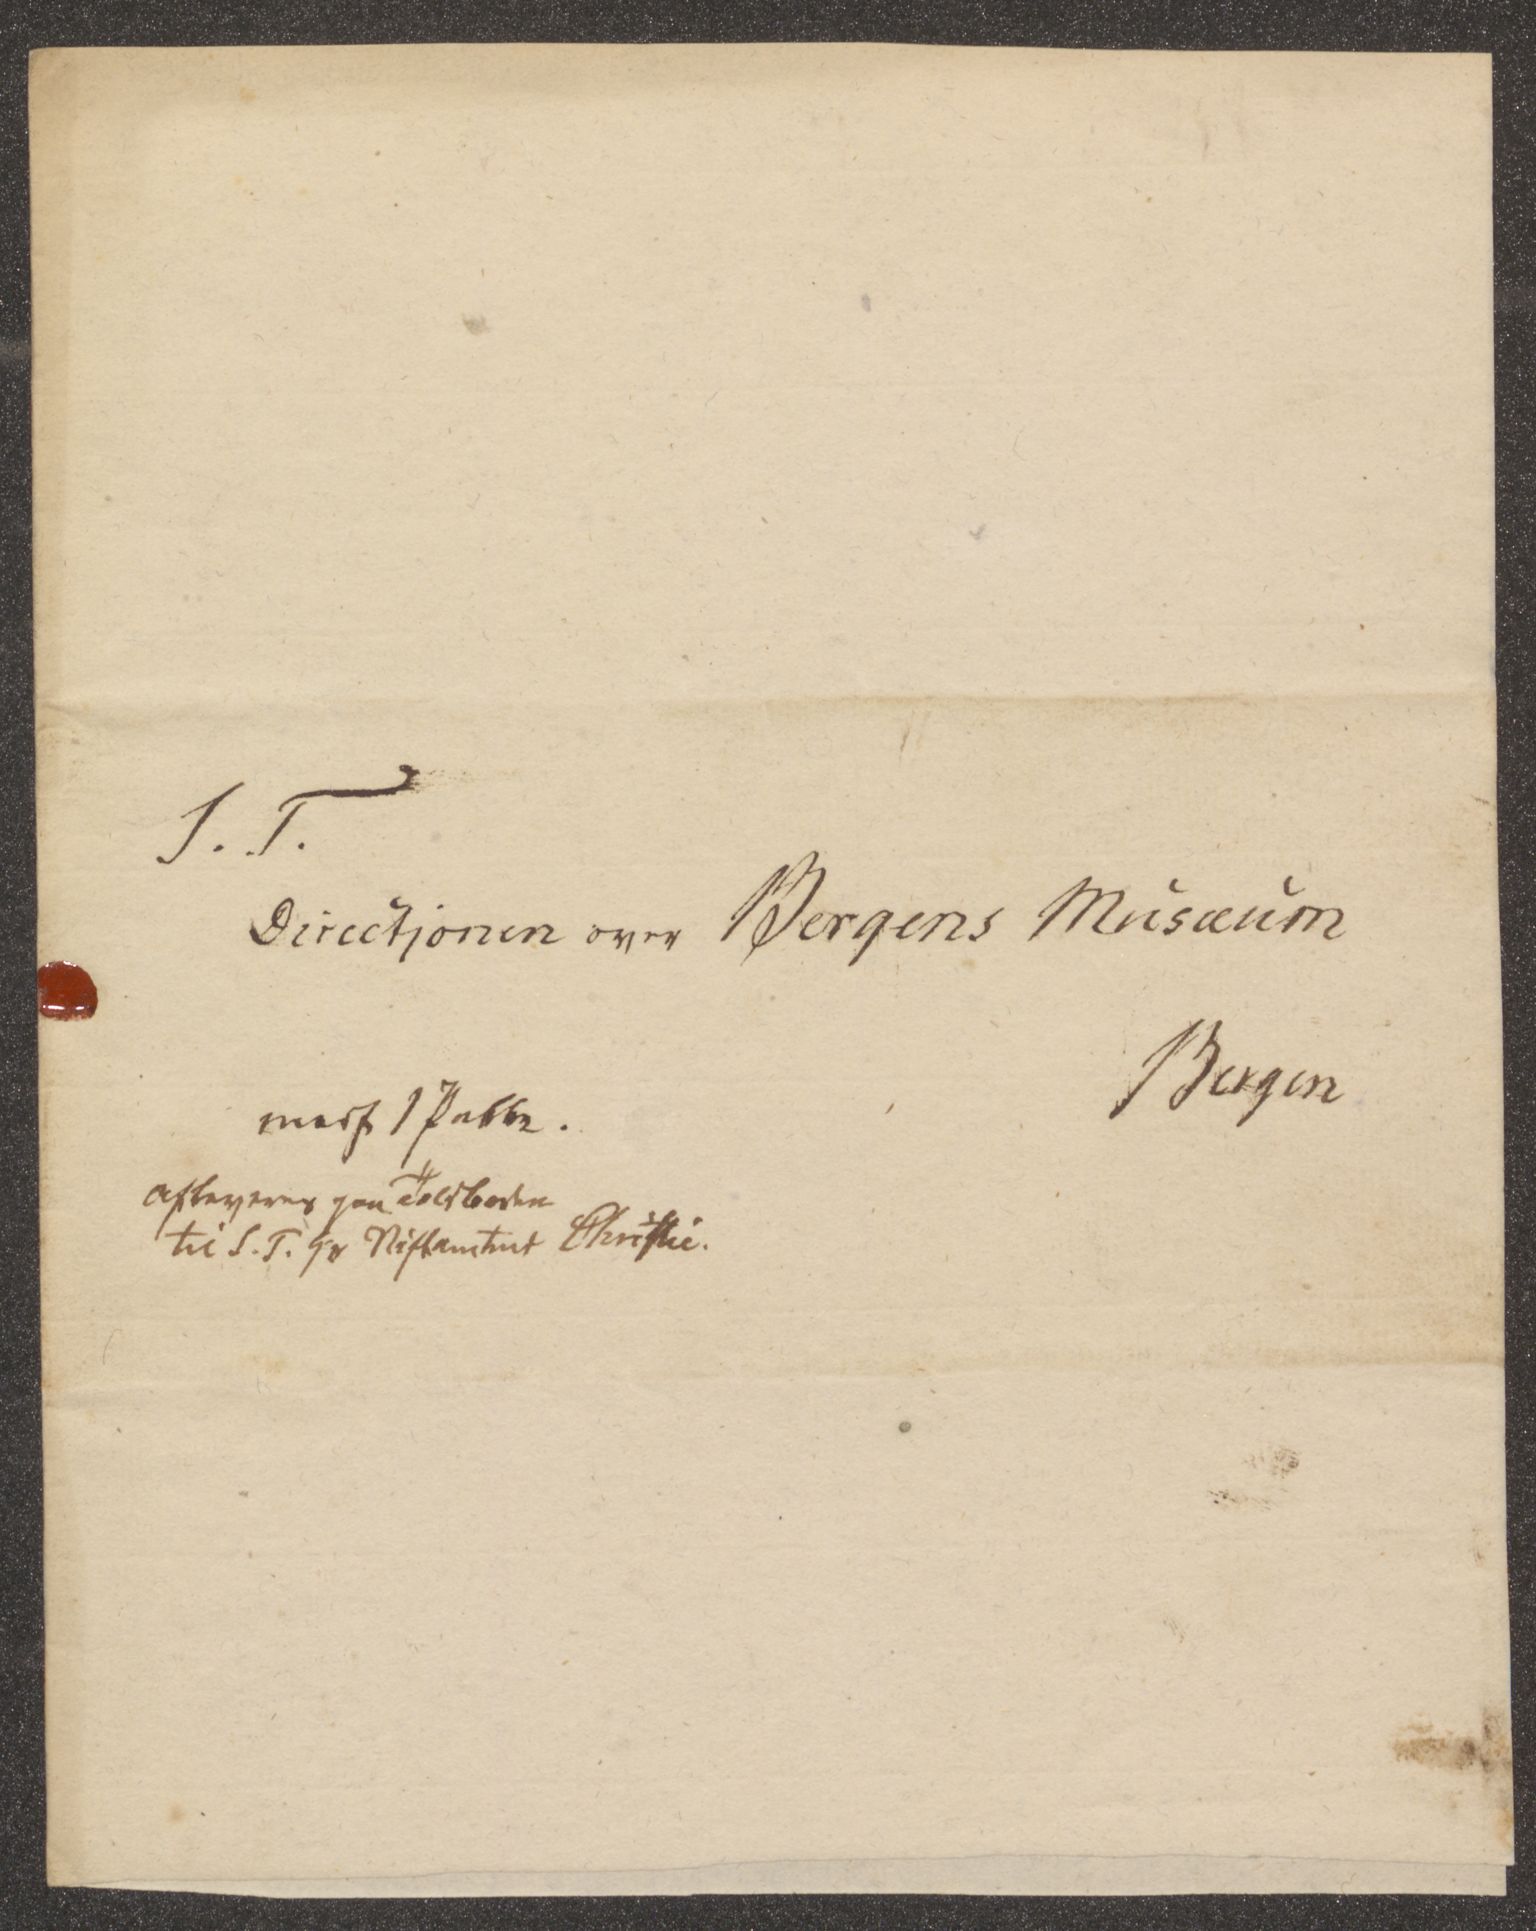 S. T.
Directjonen over Bergens Musæum
Bergen
med 1 Pakke.
afleveres paa Toldboden
til S. T. Hr Stiftamtmd Christie.